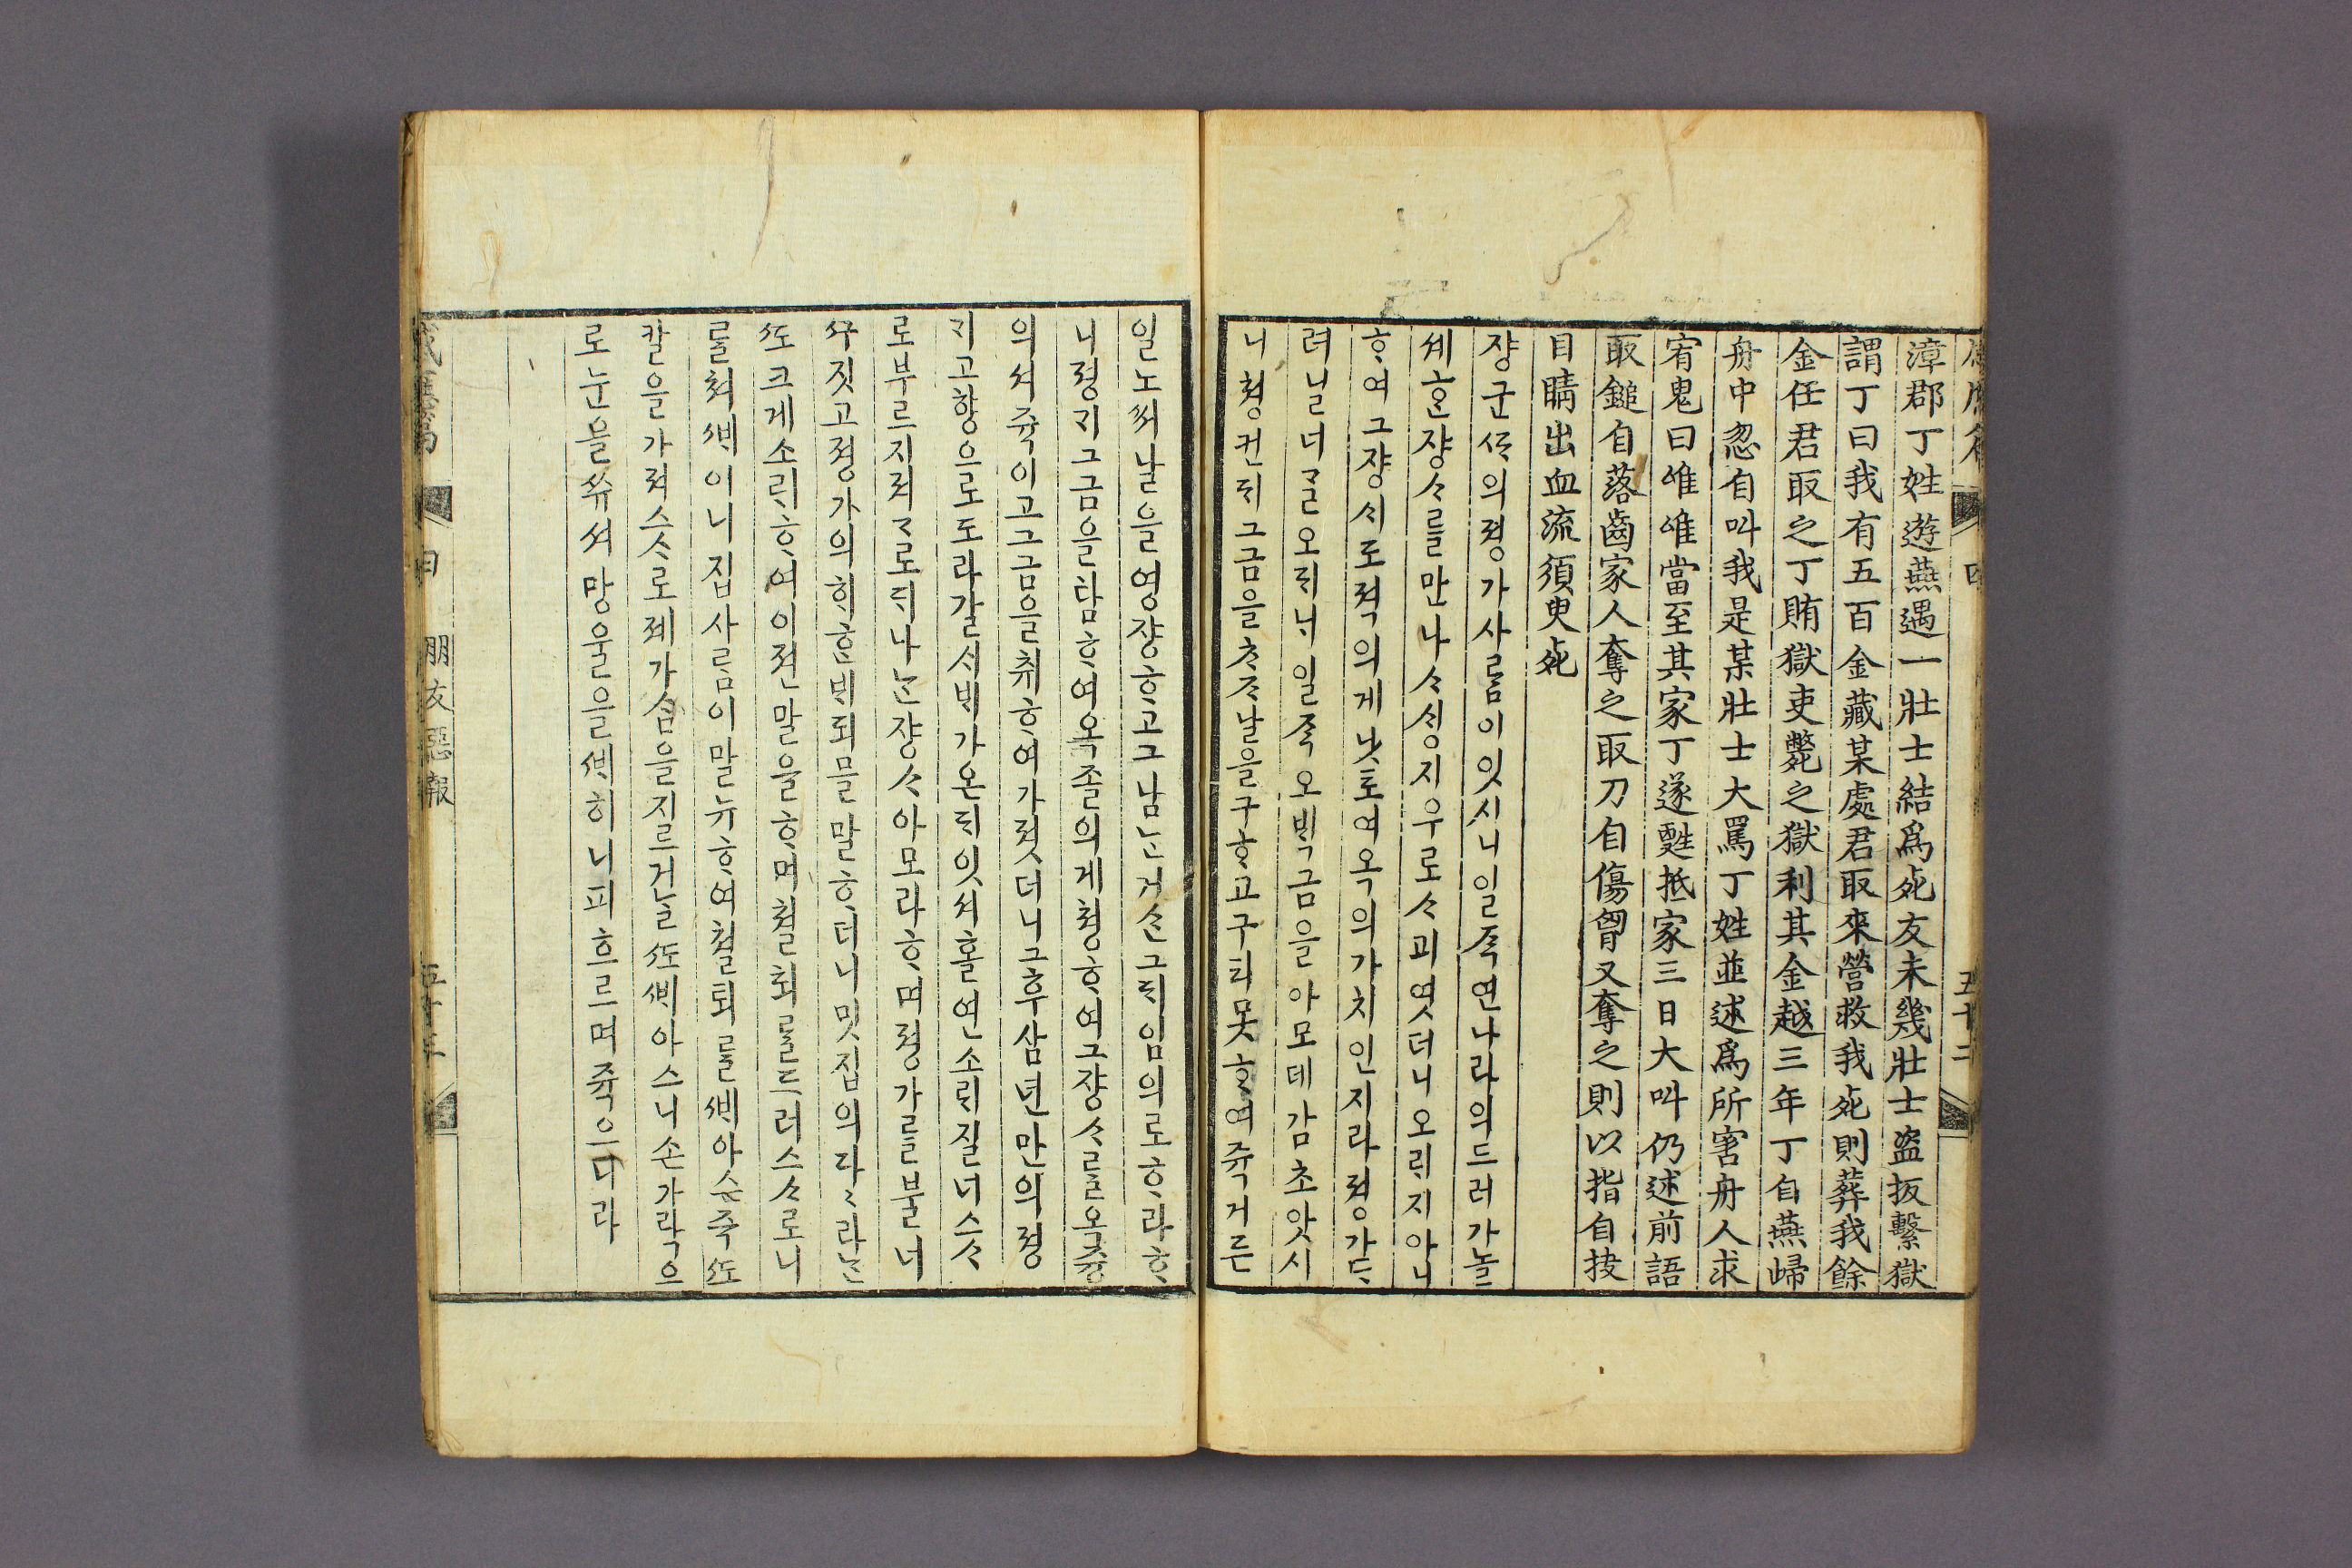 漳郡丁姓遊燕遇一壯士結爲死友未幾壯士盗扳繫獄
謂丁曰我有五百金藏某處君取來營救我死則葬我餘
金任君取之丁賄獄吏斃之獄利其金越三年丁自燕歸
舟中忽自叫我是某壯士大罵丁姓並述爲所害舟人求
宥鬼曰唯唯當至其家丁遂甦抵家三日大叫仍述前語
取鎚自落齒家人奪之取刀自傷胷又奪之則以指自抜
目睛出血流須臾死
쟝군ᄯᅡ의졍가사ᄅᆞᆷ이잇시니일즉연나라의드러가놀
셰ᄒᆞᆫ쟝ᄉᆞ를만나ᄉᆞᄉᆡᆼ지우로ᄉᆞ괴엿더니오ᄅᆡ지아니
ᄒᆞ여그쟝ᄉᆡ도젹의게낫토여옥의가치인지라졍가ᄃᆞ
려닐너ᄀᆞᆯ오ᄃᆡᄂᆡ일즉오ᄇᆡᆨ금을아모데감초앗시
니쳥컨ᄃᆡ그금을ᄎᆞᄌᆞ날을구ᄒᆞ고구치못ᄒᆞ여쥭거든
일노ᄡᅥ날을영쟝ᄒᆞ고그남ᄂᆞᆫ거ᄉᆞᆫ그ᄃᆡ임의로ᄒᆞ라ᄒᆞ
니졍ᄀᆡ그금을탐ᄒᆞ여옥졸의게쳥ᄒᆞ여그쟝ᄉᆞ를옥즁
의셔쥭이고그금을취ᄒᆞ여가졋더니그후삼년만의졍
ᄀᆡ고향으로도라갈ᄉᆡᄇᆡ가온ᄃᆡ잇셔홀연소ᄅᆡ질너스ᄉᆞ
로부르지져ᄀᆞ로ᄃᆡ나ᄂᆞᆫ쟝ᄉᆞ아모라ᄒᆞ며졍가를불너
ᄭᅮ짓고졍가의ᄒᆡᄒᆞᆫᄇᆡ되믈말ᄒᆞ더니밋집의다다라ᄂᆞᆫ
ᄯᅩ크게소ᄅᆡᄒᆞ여이젼말을ᄒᆞ며쳘퇴를드러스ᄉᆞ로니
를쳐ᄲᅢ이니집사ᄅᆞᆷ이말뉴ᄒᆞ여쳘퇴를ᄲᅢ아슨즉ᄯᅩ
칼을가져스ᄉᆞ로졔가ᄉᆞᆷ을지르거ᄂᆞᆯᄯᅩᄲᅢ아스니손가락으
로눈을쓔셔망울을ᄲᅢ히니피흐르며쥭으니라
朋友惡報